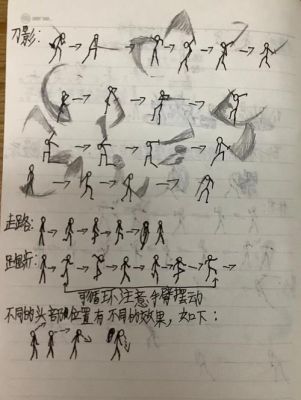 刀影：
走路：
跑行：
可循环注意手臂摆动
不同的头部位置有不同的效果，如下：